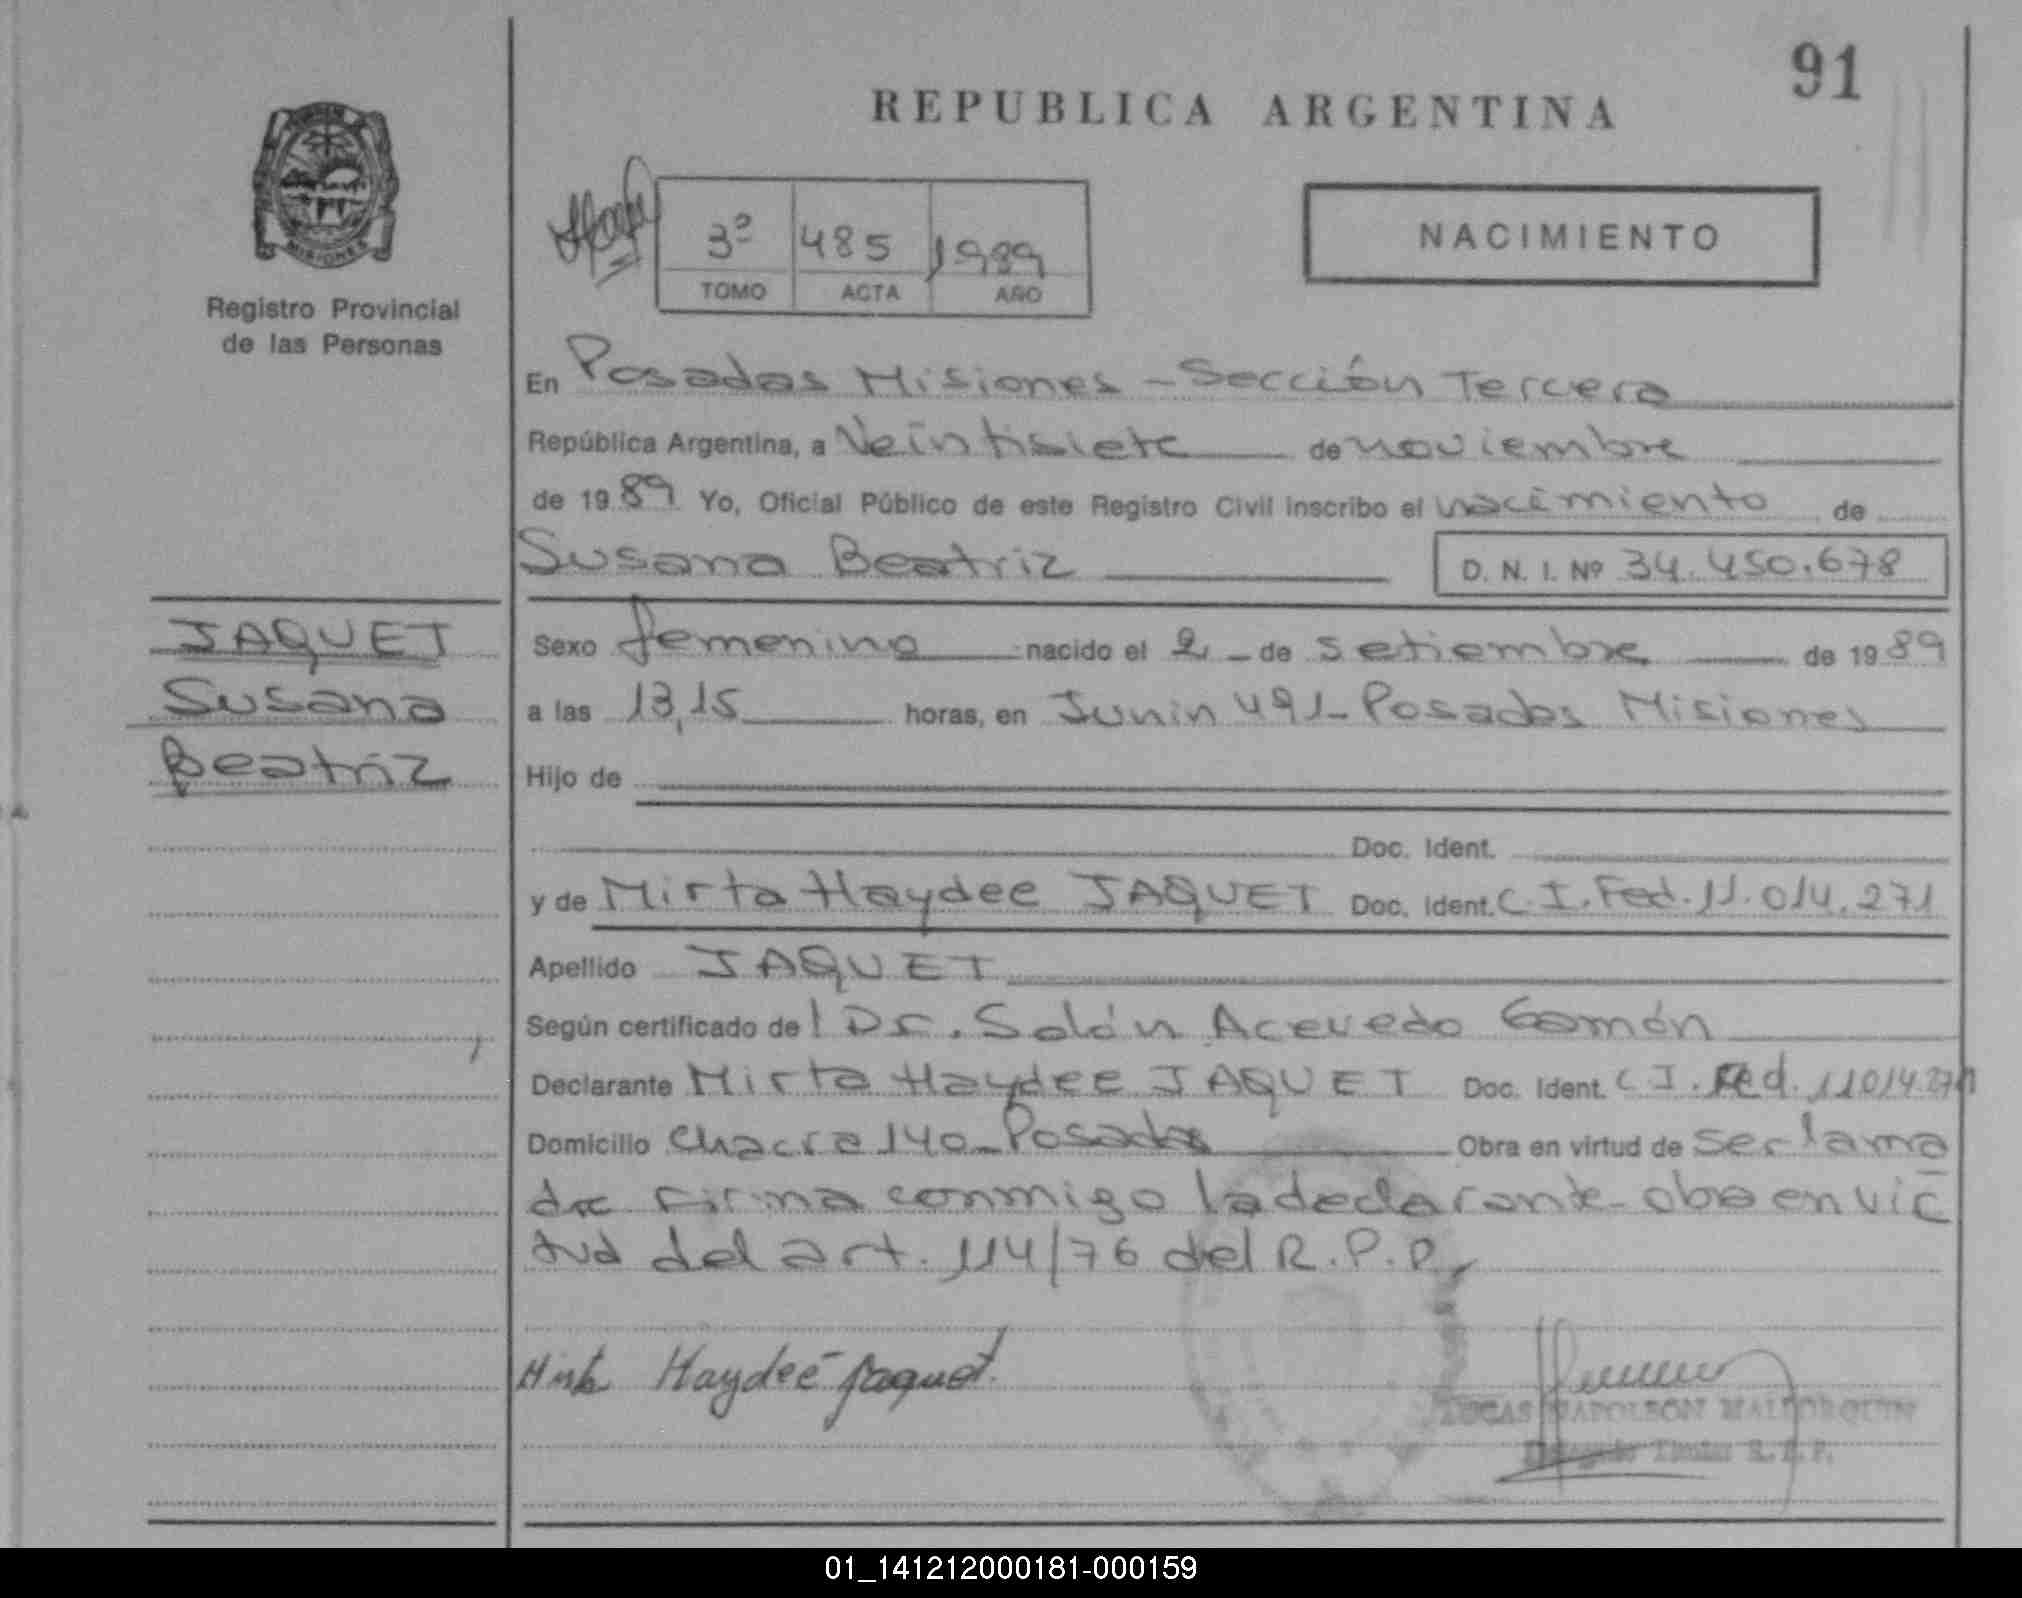 91
REPUBLICA ARGENTINA
MISIONES
Registro Provincial
de las Personas
3º 485 1989
TOMO ACTA AÑO
NACIMIENTO
En Posadas Misiones - Sección Tercera
República Argentina, a Veintisiete de noviembre
de 19 89 Yo, Oficial Público de este Registro Civil inscribo el nacimiento de
Susana Beatriz D. N. I. Nº 34.450.678
JAQUET
Susana
Beatriz
Sexo femenino nacido el 2 - de setiembre de 19 89
a las 13,15 horas, en Junin 491 - Posadas Misiones
Hijo de
Doc. Ident.
y de Mirta Haydee JAQUET Doc. Ident. C.I. Fed. 11.014.271
Apellido JAQUET
Según certificado del Dr. Solón Acevedo Gamón
Declarante Mirta Haydee JAQUET Doc. Ident. C I. Fed. 11014.271
Domicilio Chacra 140 - Posadas Obra en virtud de ser la ma
dre firma conmigo la declarante - obra en vir
tud del art. 114/76 del R.P.P.
Mirta Haydeé Jaquet.
LUCAS NAPOLEON MALLORQUIN
Delegado Titular R.P.P.
01_141212000181-000159